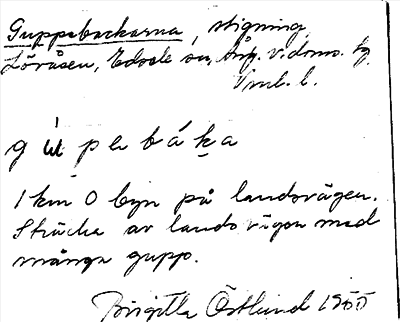 Guppebackarna, stigning,
Lövåsen, Edsele sn, Ång. v. doms. tg
Vml. l.
g ú p e b á k a
1 km O byn på landsvägen.
Sträcka av landsvägen med
många gupp.
Birgitta Östlund 1955